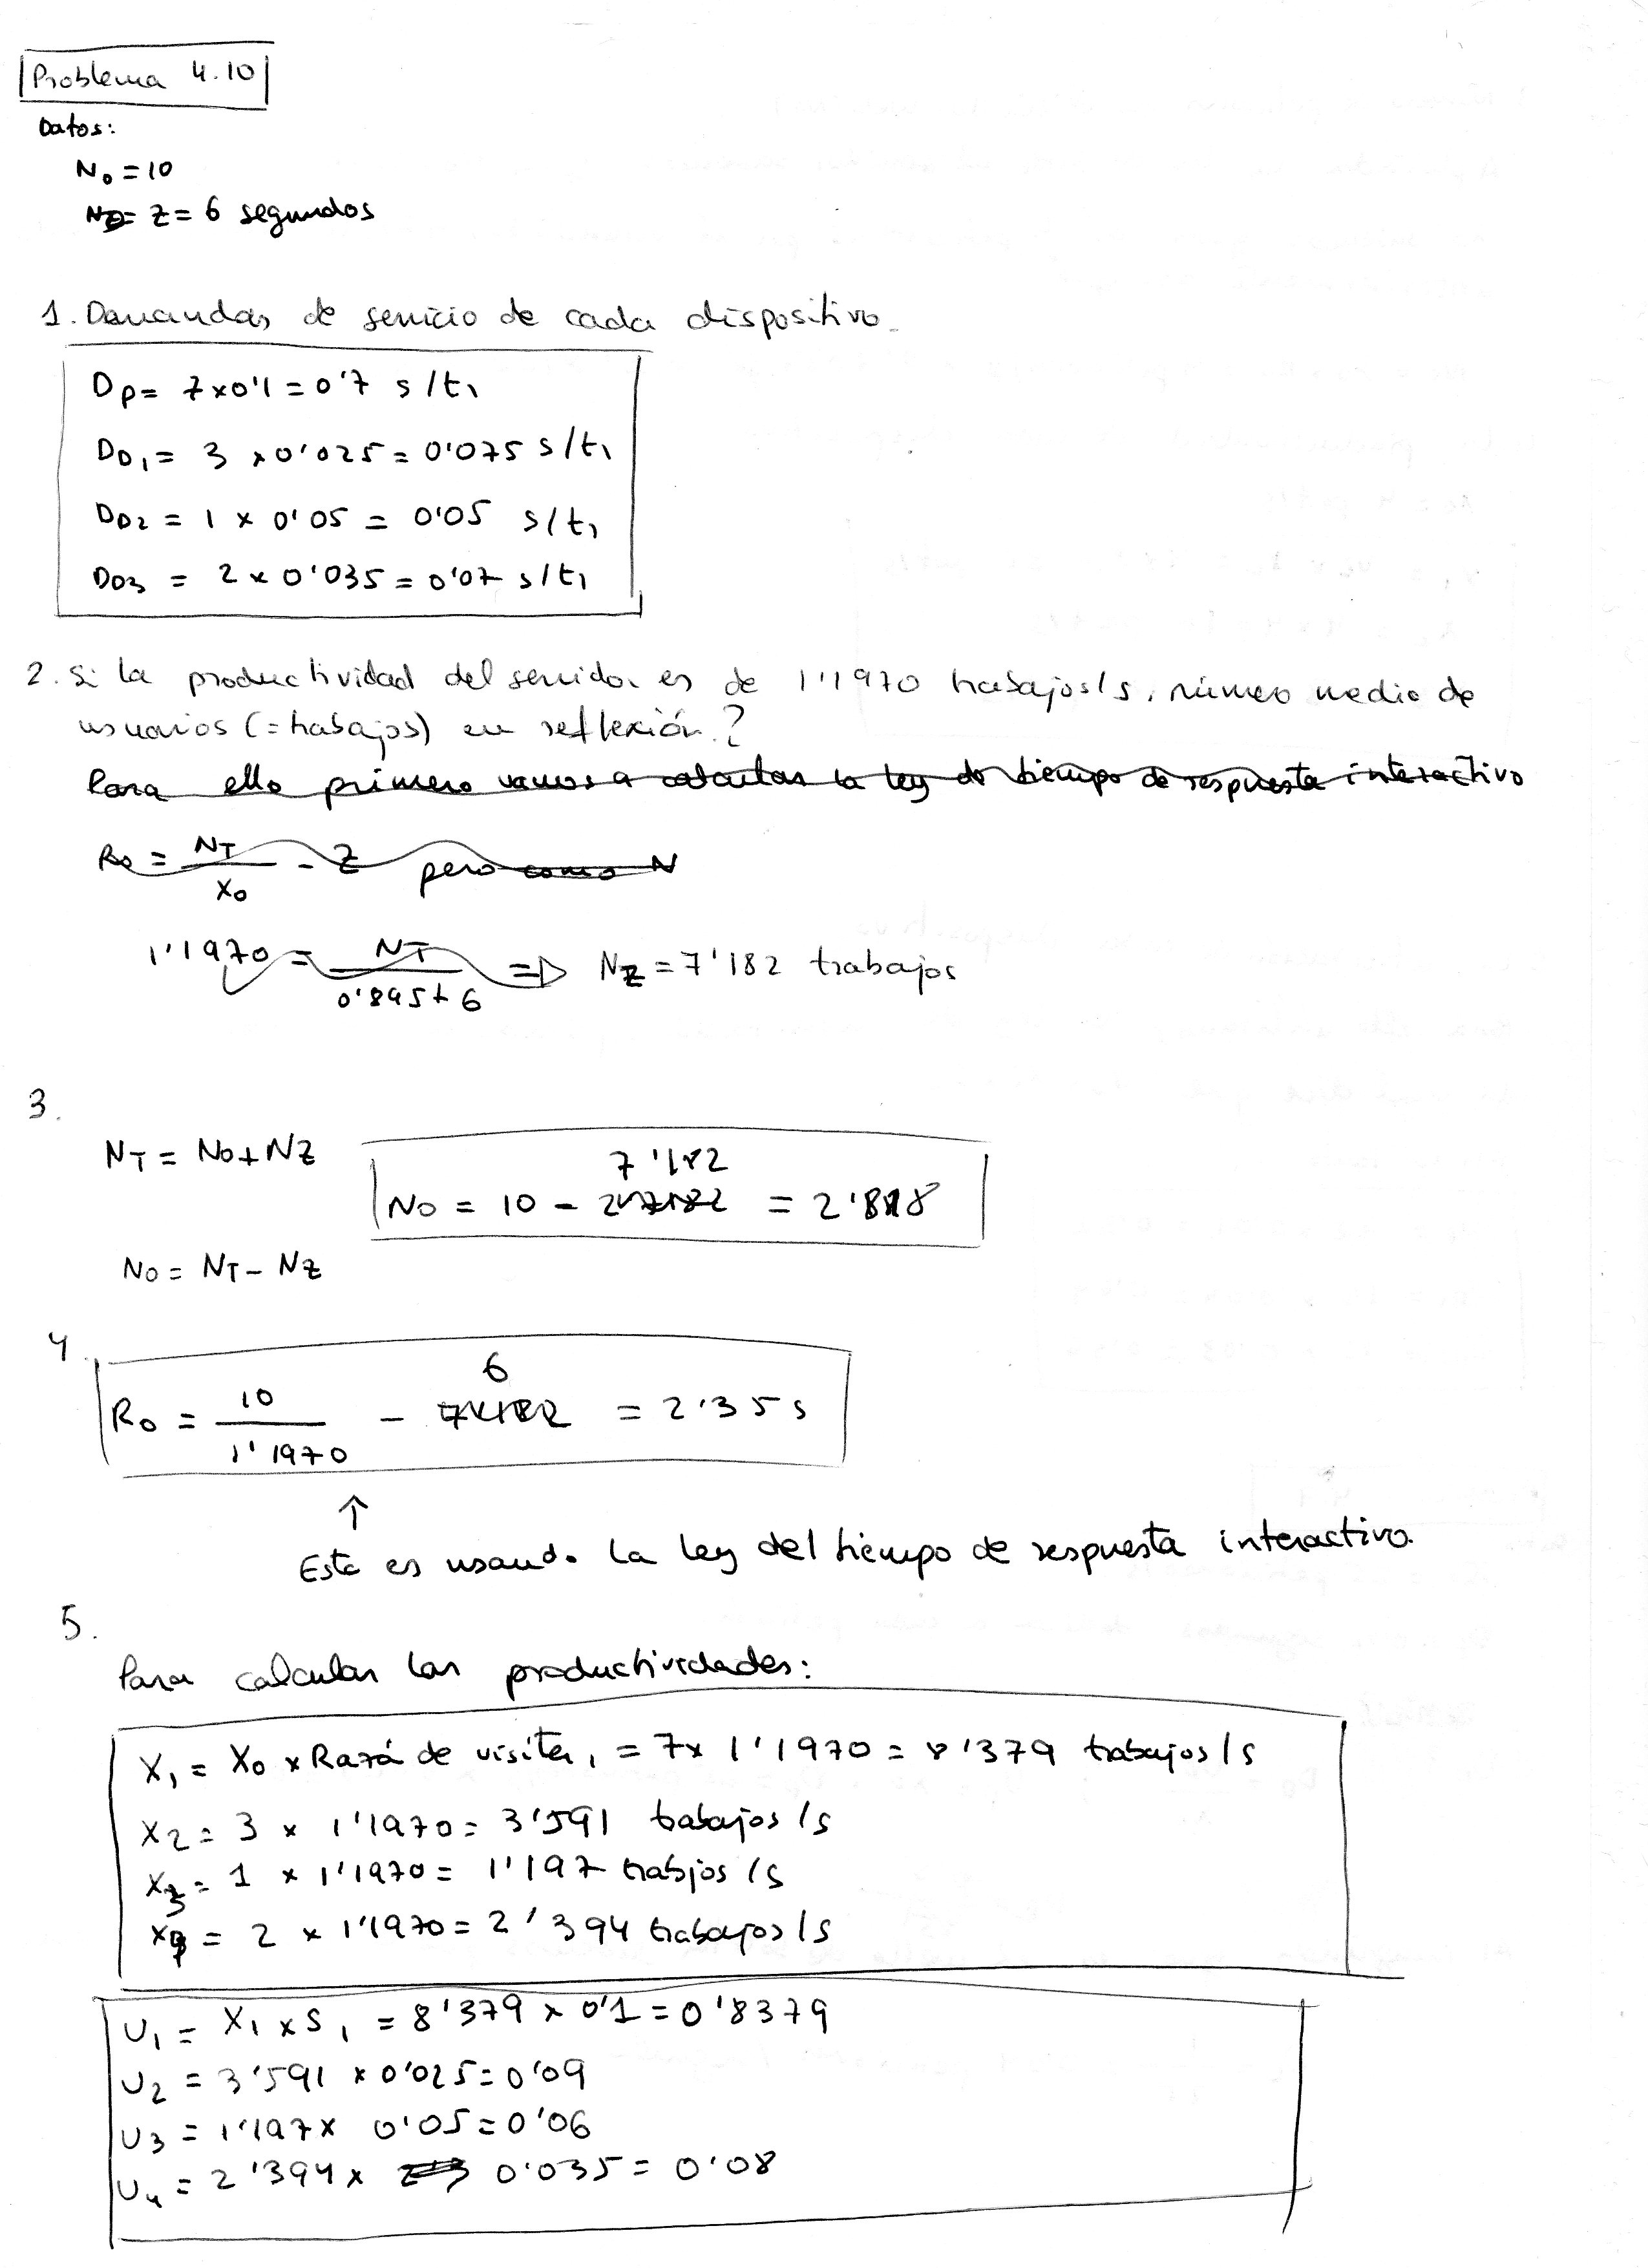 Problema 4.10
Datos:
N0 = 10
Z = 6 segundos
1. Demandas de servicio de cada dispositivo.
Dp = 7 x 0'1 = 0'7 s/t,
DD1 = 3 x 0'025 = 0'075 s/t,
DD2 = 1 x 0'05 = 0'05 s/t,
DD3 = 2 x 0'035 = 0'07 s/t,
2. Si la productividad del servidor es de 1'1970 trabajos/s, número medio de
usuarios (= trabajos) en reflexión?
Para ello primero vamos a calcular la ley de tiempo de respuesta interactivo
R0 = NT / X0 - Z pero como N
1'1970 = NT / 0'895 + 6 => NZ = 7'182 trabajos
3.
NT = N0 + NZ
7'182
N0 = 10 - = 2'818
N0 = NT - NZ
4
6
R0 = 10 / 1'1970 - = 2'35 s
↑
Esto es usando la ley del tiempo de respuesta interactivo.
5.
Para calcular las productividades:
X1 = X0 x Razó de visita, = 7 x 1'1970 = 8'379 trabajos/s
X2 = 3 x 1'1970 = 3'591 trabajos/s
X3 = 1 x 1'1970 = 1'197 trabjos/s
X4 = 2 x 1'1970 = 2'394 trabajos/s
U1 = X1 x S1 = 8'379 x 0'1 = 0'8379
U2 = 3'591 x 0'025 = 0'09
U3 = 1'197 x 0'05 = 0'06
U4 = 2'394 x 0'035 = 0'08